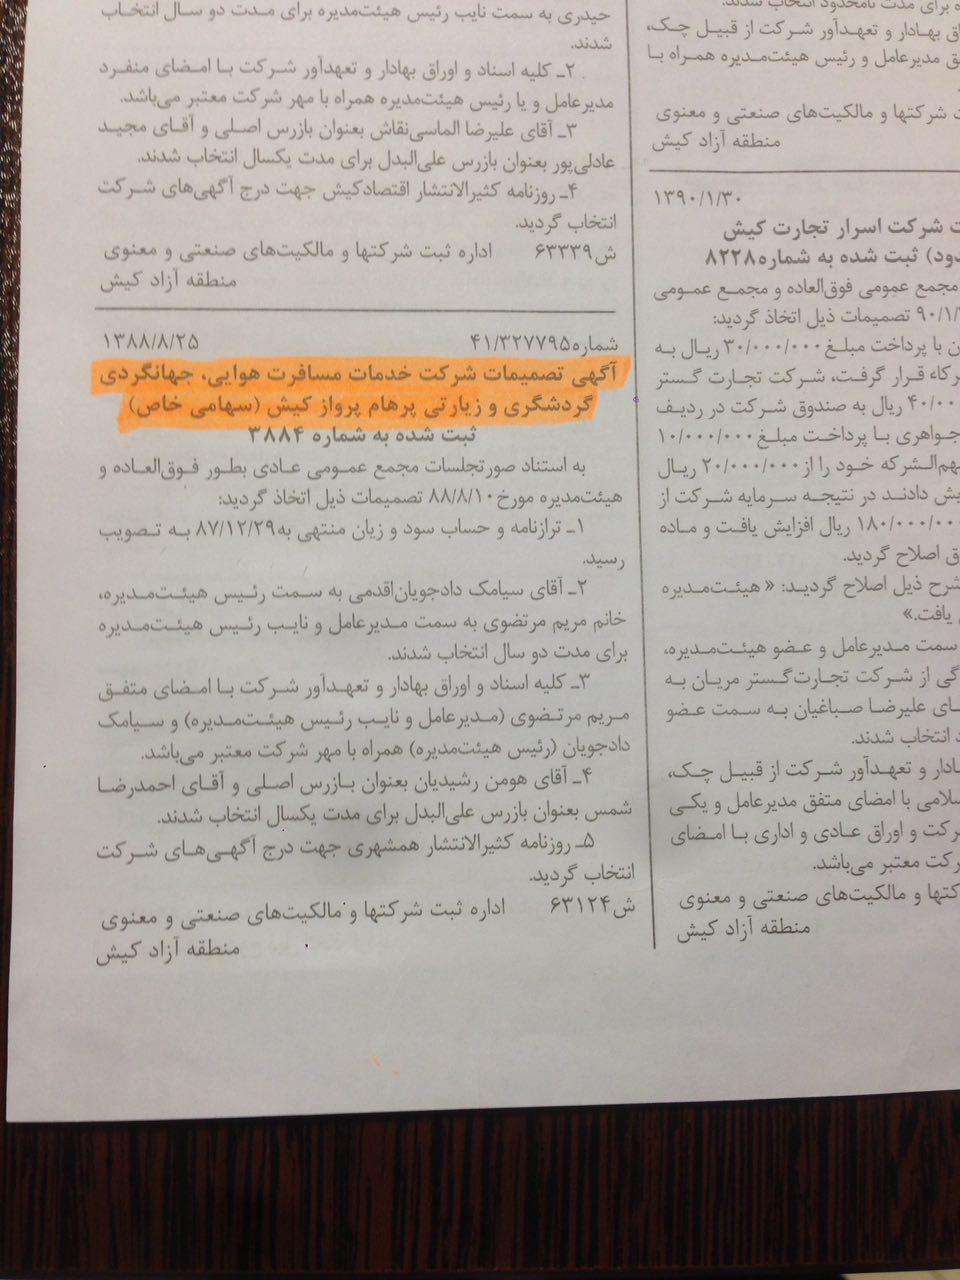 حیدری به سمت نایب رئیس هیئت‌مدیره برای مدت دو سال انتخاب
شدند.
۲ـ کلیه اسناد و اوراق بهادار و تعهدآور شرکت با امضای منفرد
مدیرعامل و یا رئیس هیئت‌مدیره همراه با مهر شرکت معتبر می‌باشد.
۳ـ آقای علیرضا الماسی‌نقاش بعنوان بازرس اصلی و آقای مجید
عادلی‌پور بعنوان بازرس علی‌البدل برای مدت یکسال انتخاب شدند.
۴ـ روزنامه کثیرالانتشار اقتصادکیش جهت درج آگهی‌های شرکت
انتخاب گردید.
ش۶۳۳۳۹ اداره ثبت شرکتها و مالکیت‌های صنعتی و معنوی
منطقه آزاد کیش
شماره۴۱/۳۲۷۷۹۵ ۱۳۸۸/۸/۲۵
آگهی تصمیمات شرکت خدمات مسافرت هوایی، جهانگردی
گردشگری و زیارتی پرهام پرواز کیش (سهامی خاص)
ثبت شده به شماره ۳۸۸۴
به استناد صورتجلسات مجمع عمومی عادی بطور فوق‌العاده و
هیئت‌مدیره مورخ۸۸/۸/۱۰ تصمیمات ذیل اتخاذ گردید:
۱ـ ترازنامه و حساب سود و زیان منتهی به۸۷/۱۲/۲۹ به تصویب
رسید.
۲ـ آقای سیامک دادجویان‌اقدمی به سمت رئیس هیئت‌مدیره،
خانم مریم مرتضوی به سمت مدیرعامل و نایب رئیس هیئت‌مدیره
برای مدت دو سال انتخاب شدند.
۳ـ کلیه اسناد و اوراق بهادار و تعهدآور شرکت با امضای متفق
مریم مرتضوی (مدیرعامل و نایب رئیس هیئت‌مدیره) و سیامک
دادجویان (رئیس هیئت‌مدیره) همراه با مهر شرکت معتبر می‌باشد.
۴ـ آقای هومن رشیدیان بعنوان بازرس اصلی و آقای احمدرضا
شمس بعنوان بازرس علی‌البدل برای مدت یکسال انتخاب شدند.
۵ـ روزنامه کثیرالانتشار همشهری جهت درج آگهی‌های شرکت
انتخاب گردید.
ش۶۳۱۲۴ اداره ثبت شرکتها و مالکیت‌های صنعتی و معنوی
منطقه آزاد کیش
برای مدت نامحدود انتخاب شدند.
بهادار و تعهدآور شرکت از قبیل چک،
مدیرعامل و رئیس هیئت‌مدیره همراه با
شرکتها و مالکیت‌های صنعتی و معنوی
منطقه آزاد کیش
۱۳۹۰/۱/۳۰
شرکت اسرار تجارت کیش
ثبت شده به شماره۸۲۲۸
مجمع عمومی فوق‌العاده و مجمع عمومی
تصمیمات ذیل اتخاذ گردید:
با پرداخت مبلغ۳۰/۰۰۰/۰۰۰ ریال به
قرار گرفت، شرکت تجارت گستر
ریال به صندوق شرکت در ردیف
جواهری با پرداخت مبلغ۱۰/۰۰۰/۰۰۰
خود را از۲۰/۰۰۰/۰۰۰ ریال
دادند در نتیجه سرمایه شرکت از
۱۸۰/۰۰۰/۰۰۰ ریال افزایش یافت و ماده
اصلاح گردید.
شرح ذیل اصلاح گردید: «هیئت‌مدیره
یافت.»
سمت مدیرعامل و عضو هیئت‌مدیره،
از شرکت تجارت‌گستر مریان به
علیرضا صباغیان به سمت عضو
انتخاب شدند.
و تعهدآور شرکت از قبیل چک،
با امضای متفق مدیرعامل و یکی
و اوراق عادی و اداری با امضای
معتبر می‌باشد.
و مالکیت‌های صنعتی و معنوی
منطقه آزاد کیش